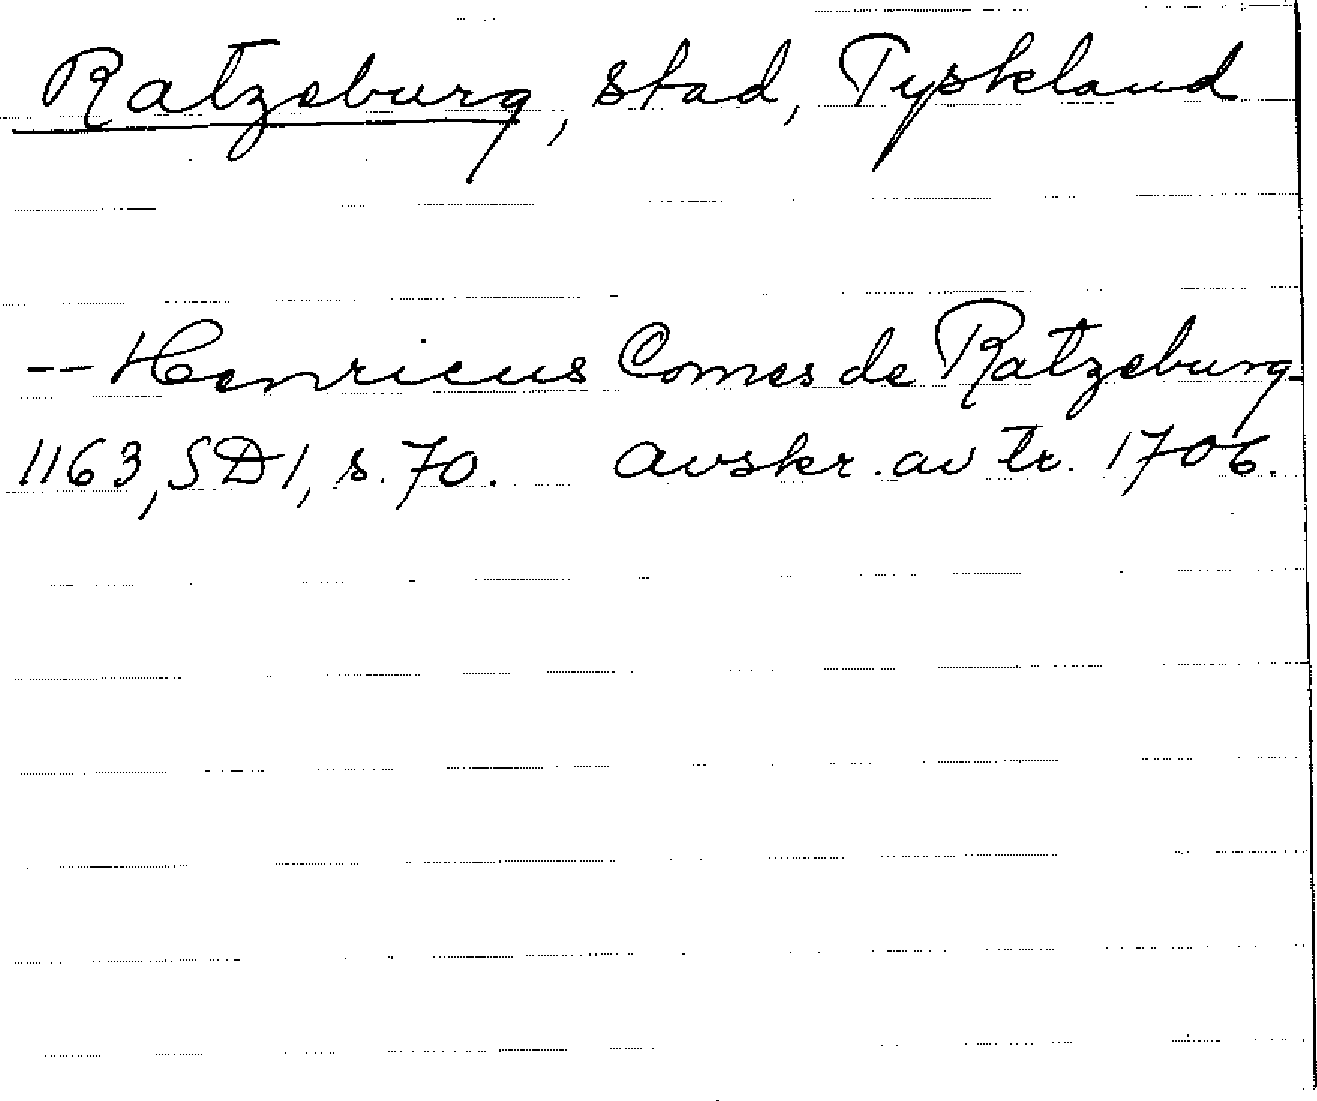 Ratzeburg, stad, Tyskland
-- Henricus Comes de Ratzeburg -
1163, SD 1, s. 70. avskr. av tr. 1706.